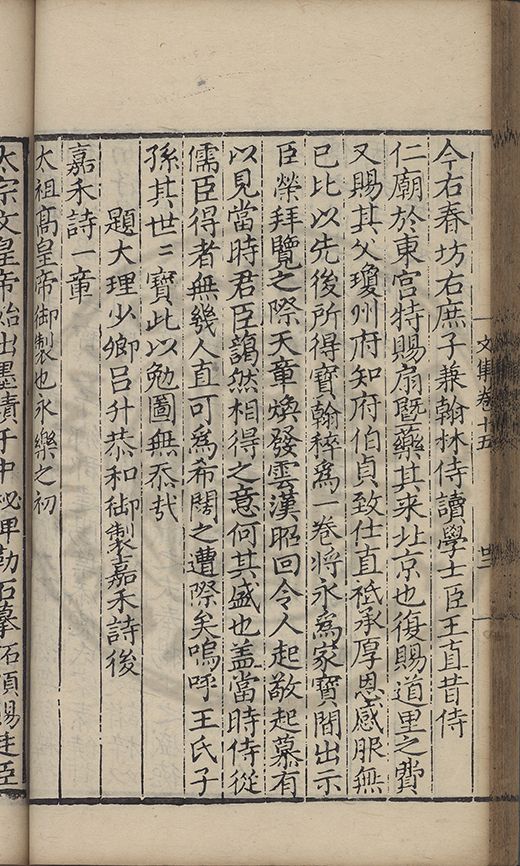 今右春坊右庶子兼翰林侍讀學士臣王直昔侍
仁廟於東宫特賜扇暨藥其来北京也復賜道里之費
又賜其父瓊州府知府伯貞致仕直祗承厚恩感服無
已比以先後所得寳翰稡爲一卷将永爲家寳間出示
臣榮拜覽之際天章煥發雲漢昭回令人起敬起慕有
以見當時君臣藹然相得之意何其盛也盖當時侍從
儒臣得者無幾人直可爲希闊之遭際矣嗚呼王氏子
孫其世〻寳此以勉圖無忝㢤
題大理少卿吕升恭和御製嘉禾詩後
嘉禾詩一章
太祖髙皇帝御製也永樂之初
太宗文皇帝始出墨蹟于中秘甲勒石摹
頒賜
臣
文集卷十五